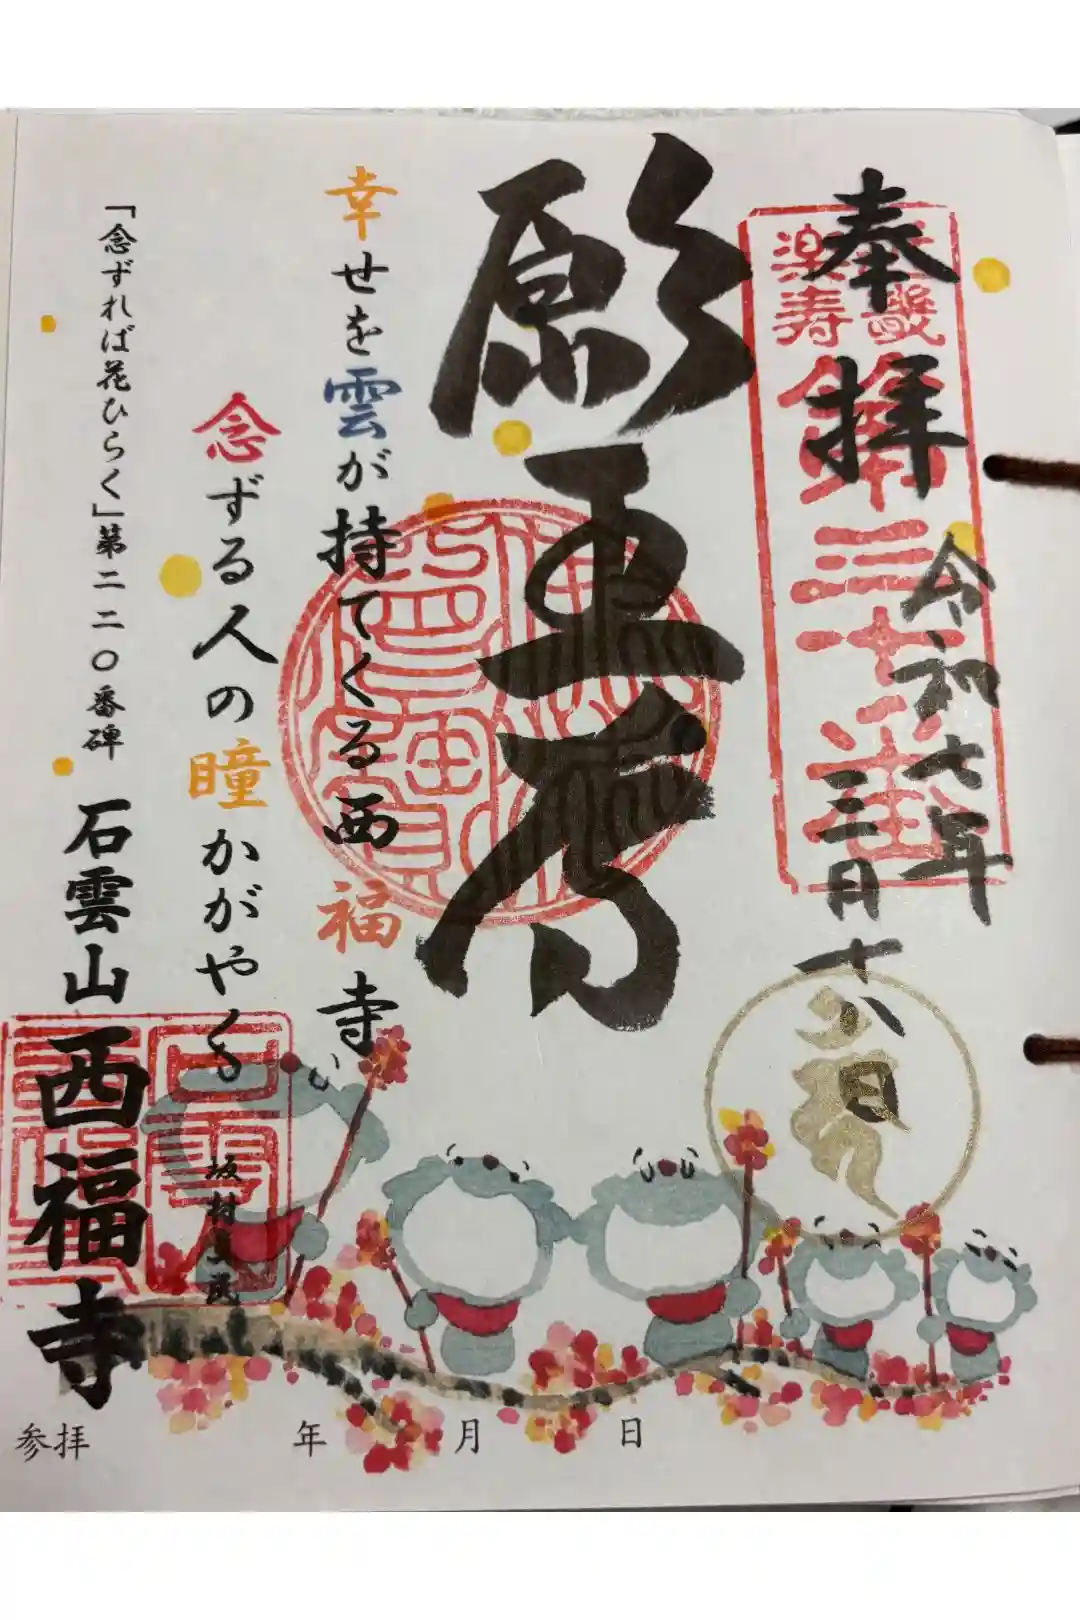 奉拝
令和七年
三月十八日
第三十一番
願王尊
幸せを雲が持てくる西福寺
念ずる人の瞳かがやく
坂村真民
「念ずれば花ひらく」第二二〇番碑
石雲山西福寺
参拝 年 月 日